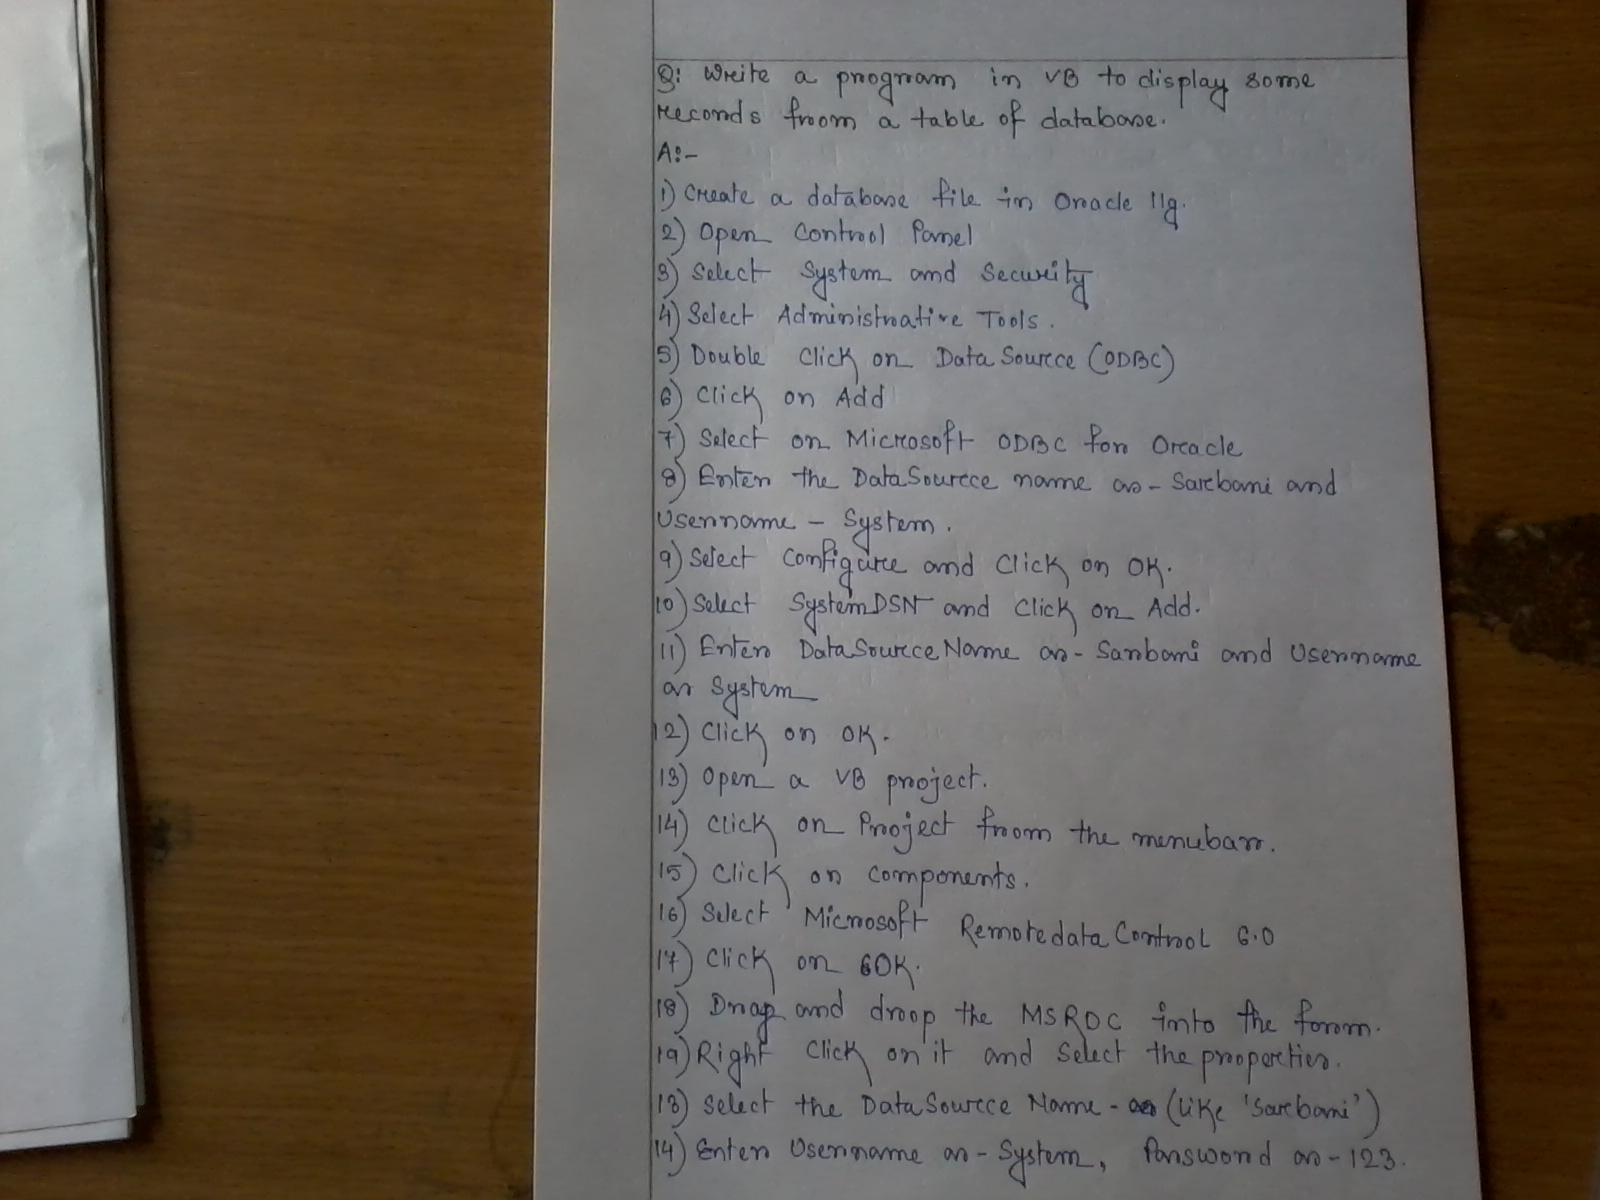 Q: Write a program in VB to display some
records from a table of database.
A:-
1) Create a database file in Oracle 11g.
2) Open Control Panel
3) Select System and Security
4) Select Administrative Tools.
5) Double Click on Data Source (ODBC)
6) Click on Add
7) Select on Microsoft ODBC for Oracle
8) Enter the DataSource name as - Sarbani and
Username - System.
9) Select Configure and Click on OK.
10) Select SystemDSN and Click on Add.
11) Enter DataSourceName as - Sarbani and Username
as System
12) Click on OK.
13) Open a VB project.
14) Click on Project from the menubar.
15) Click on Components.
16) Select Microsoft Remotedata Control 6.0
17) Click on OK.
18) Drag and drop the MSRDC into the form.
19) Right Click on it and Select the properties.
13) Select the DataSource Name - as (like 'Sarbani')
14) Enter Username as - System, Password as - 123.